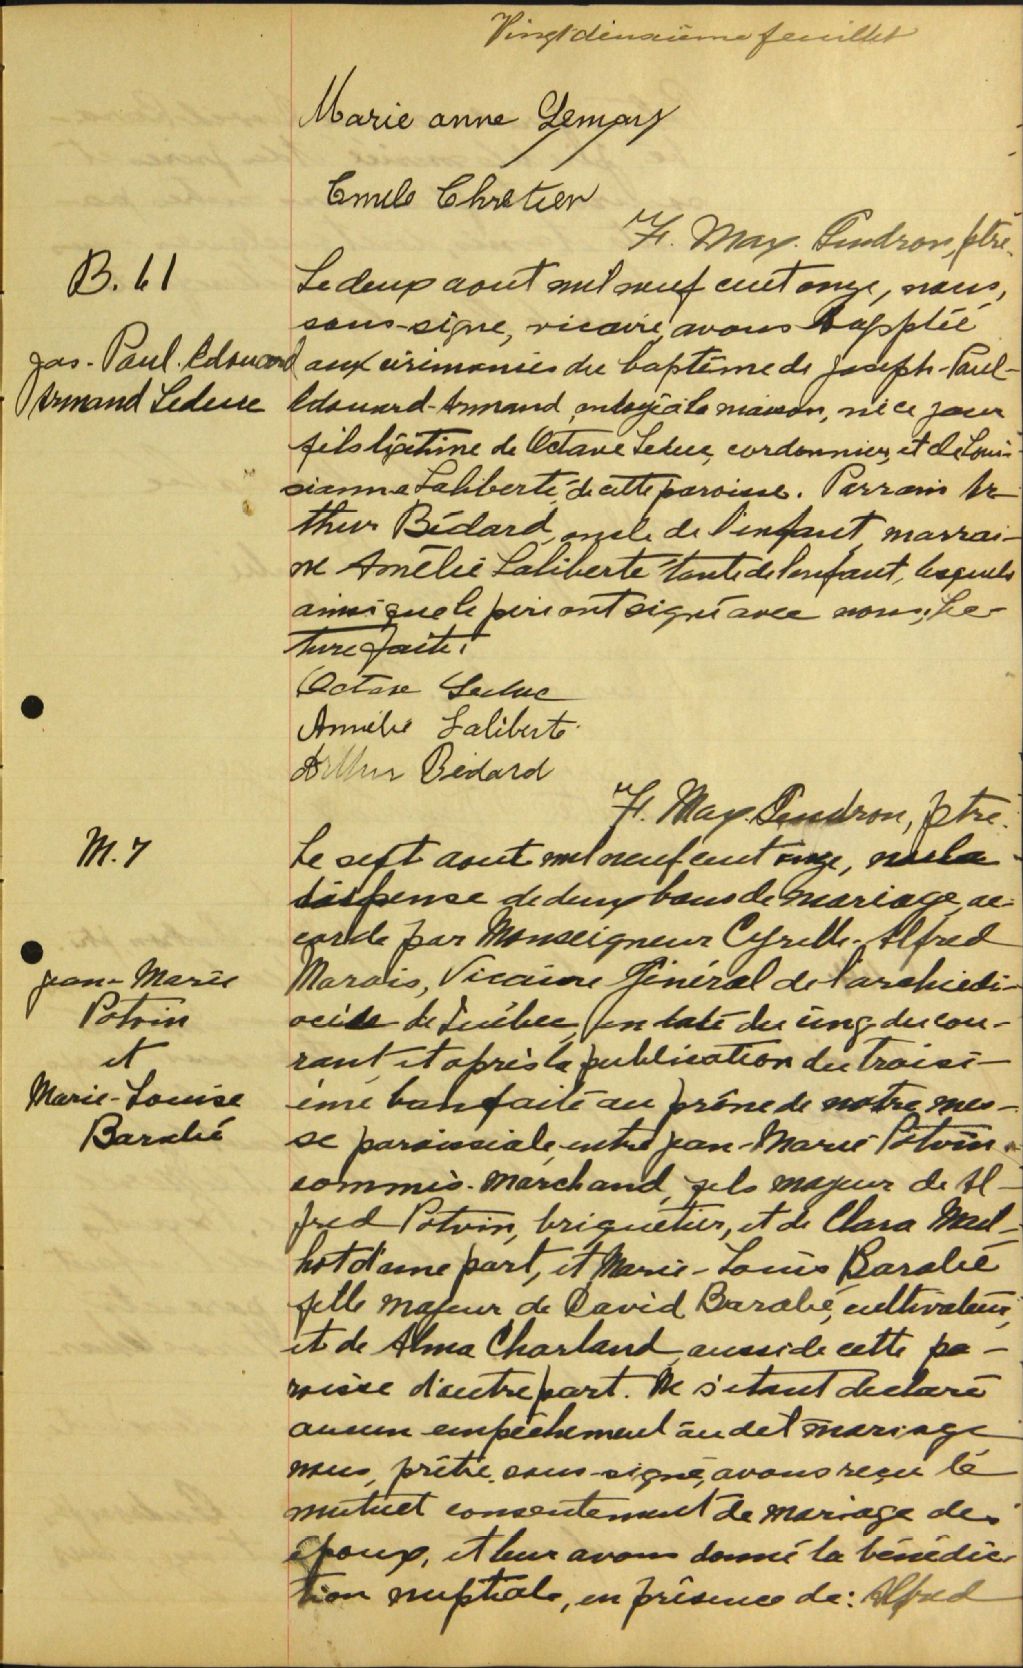 Vingt deuxième feuillet
Marie anne Lemay
Emile Chretien
F. Max. Gendron, ptre.
B. 61
Le deux aout mil neuf cent onze, nous,
sous-signe, vicaire, avons supplée
Jos-Paul-Edouard
Armand Leduc
aux cérimonies du baptême de Joseph-Paul-
Edouard-Armand, ondoyé à la maison, né ce jour
fils légitime de Octave Leduc, cordonnier, et de Loui-
sianna Laliberté, de cette paroisse. Parrain Ar-
thur Bédard, oncle de l'enfant, marrai-
ne Amélie Laliberté tante de l'enfant, lesquels
ainsi que le père ont signé avec nous, Lec-
ture faite.
Octave Leduc
Amélie Laliberté
Arthur Bédard
F. Max. Gendron, ptre.
M. 7
Jean-Marie
Potvin
et
Marie-Louise
Barabé
Le sept aout mil neuf cent onze, vu la
dispense de deux bans de mariage, ac-
cordé par Monseigneur Cyrille-Alfred
Marois, Vicaire Général de l'archidi-
ocèse de Québec, en date du cinq du cou-
rant, et après la publication du troisi-
ème ban faite au prône de notre mes-
se paroissiale, entre Jean-Marie Potvin
commis-marchand, fils majeur de Al-
fred Potvin, briquetier, et de Clara Mail-
hot d'une part, et Marie-Louis Barabé
fille majeur de David Barabé, cultivateur,
et de Alma Charland, aussi de cette pa-
roisse d'autre part. Ne s'étant declaré
aucun empêchement au dit mariage
nous, prêtre, sous-signé, avons reçu le
mutuel consentement de mariage des
époux, et leur avons donné la bénédic-
tion nuptiale, en présence de: Alfred